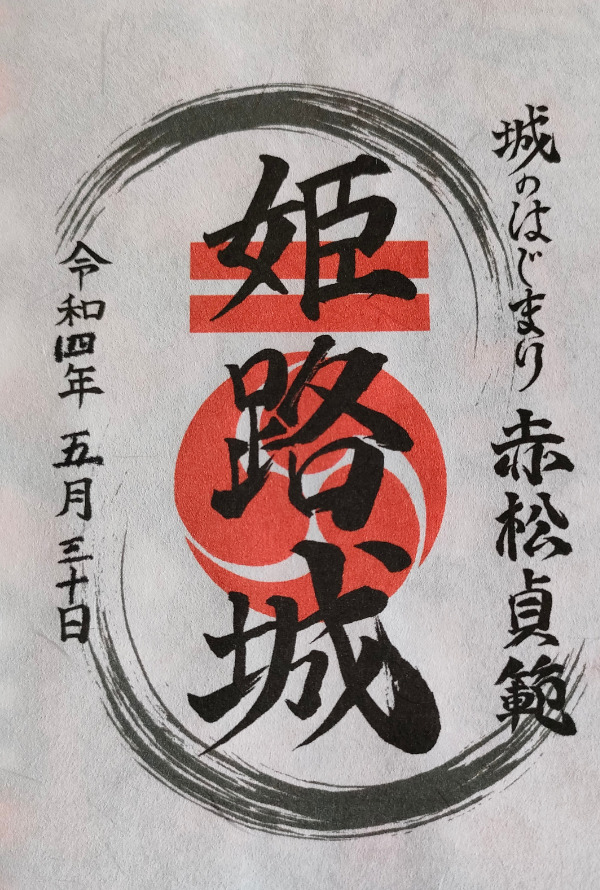 城のはじまり 赤松貞範
姫路城
令和四年 五月 三十日